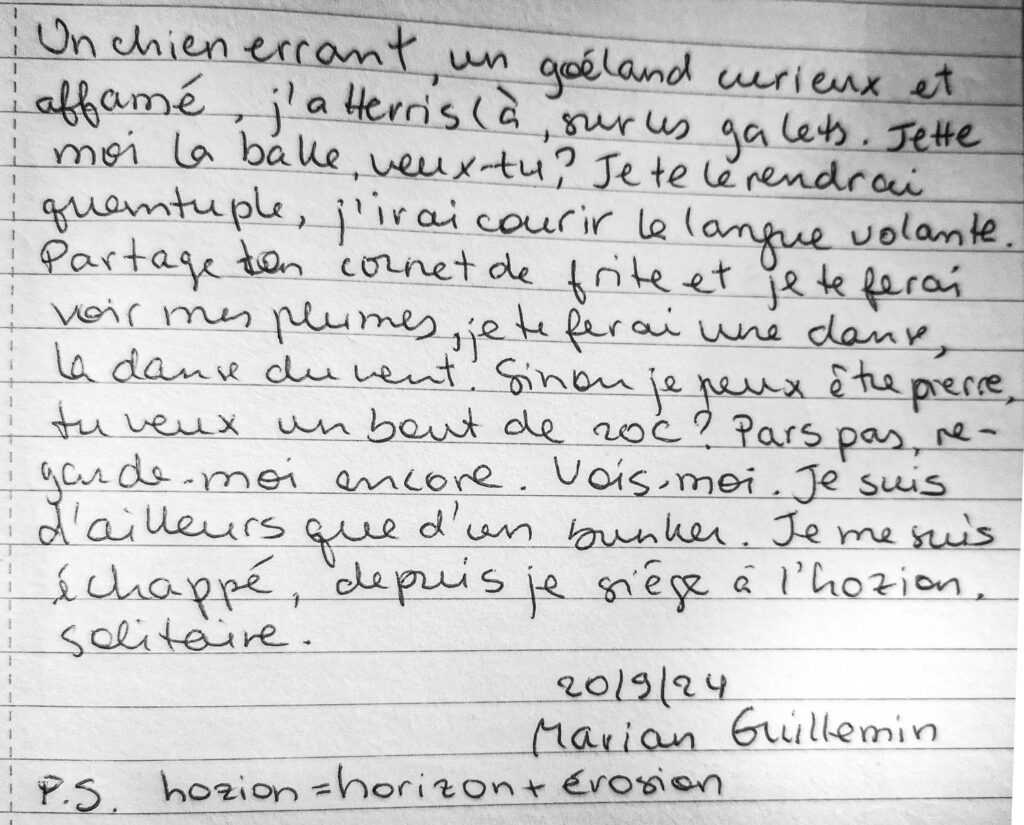 Un chien errant, un goéland curieux et
affamé, j'atterris là, sur les galets. Jette
moi la balle, veux-tu? Je te le rendrai
quamtuple, j'irai courir le langue volante.
Partage ton cornet de frite et je te ferai
voir mes plumes, je te ferai une danse,
la danse du vent. Sinon je peux être pierre,
tu veux un bout de roc? Pars pas, re-
garde-moi encore. Vois-moi. Je suis
d'ailleurs que d'un bunker. Je me suis
échappé, depuis je siège à l'hozion,
solitaire.
20/9/24
Marian Guillemin
P.S. hozion = horizon + érosion